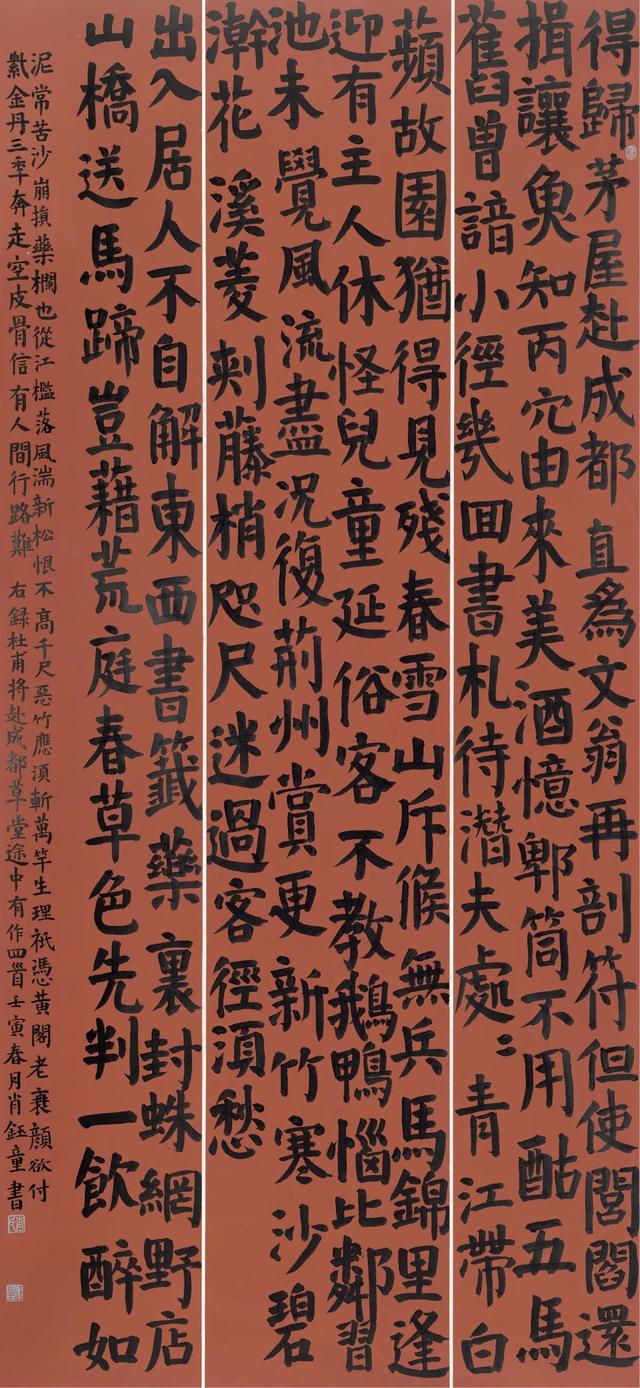 得歸茅屋赴成都直爲文翁再剖符但使閭閻還
揖讓魚知丙穴由來美酒憶郫筒不用酤五馬
舊曾諳小徑幾回書札待潛夫處〻青江帶白
蘋故園猶得見殘春雪山斥候無兵馬錦里逢
迎有主人休怪兒童延俗客不教鵝鴨惱比鄰習
池未覺風流盡況復荊州賞更新竹寒沙碧
澣花溪菱刺藤梢咫尺迷過客徑須愁
出入居人不自解東西書籤藥裏封蛛網野店
山橋送馬蹄豈藉荒庭春草色先判一飲醉如
泥常苦沙崩損藥欄也從江檻落風湍新松恨不高千尺惡竹應須斬萬竿生理祇憑黃閣老衰顏欲付
紫金丹三秊奔走空皮骨信有人間行路難 右錄杜甫將赴成都草堂途中有作四首壬寅春月肖鈺童書